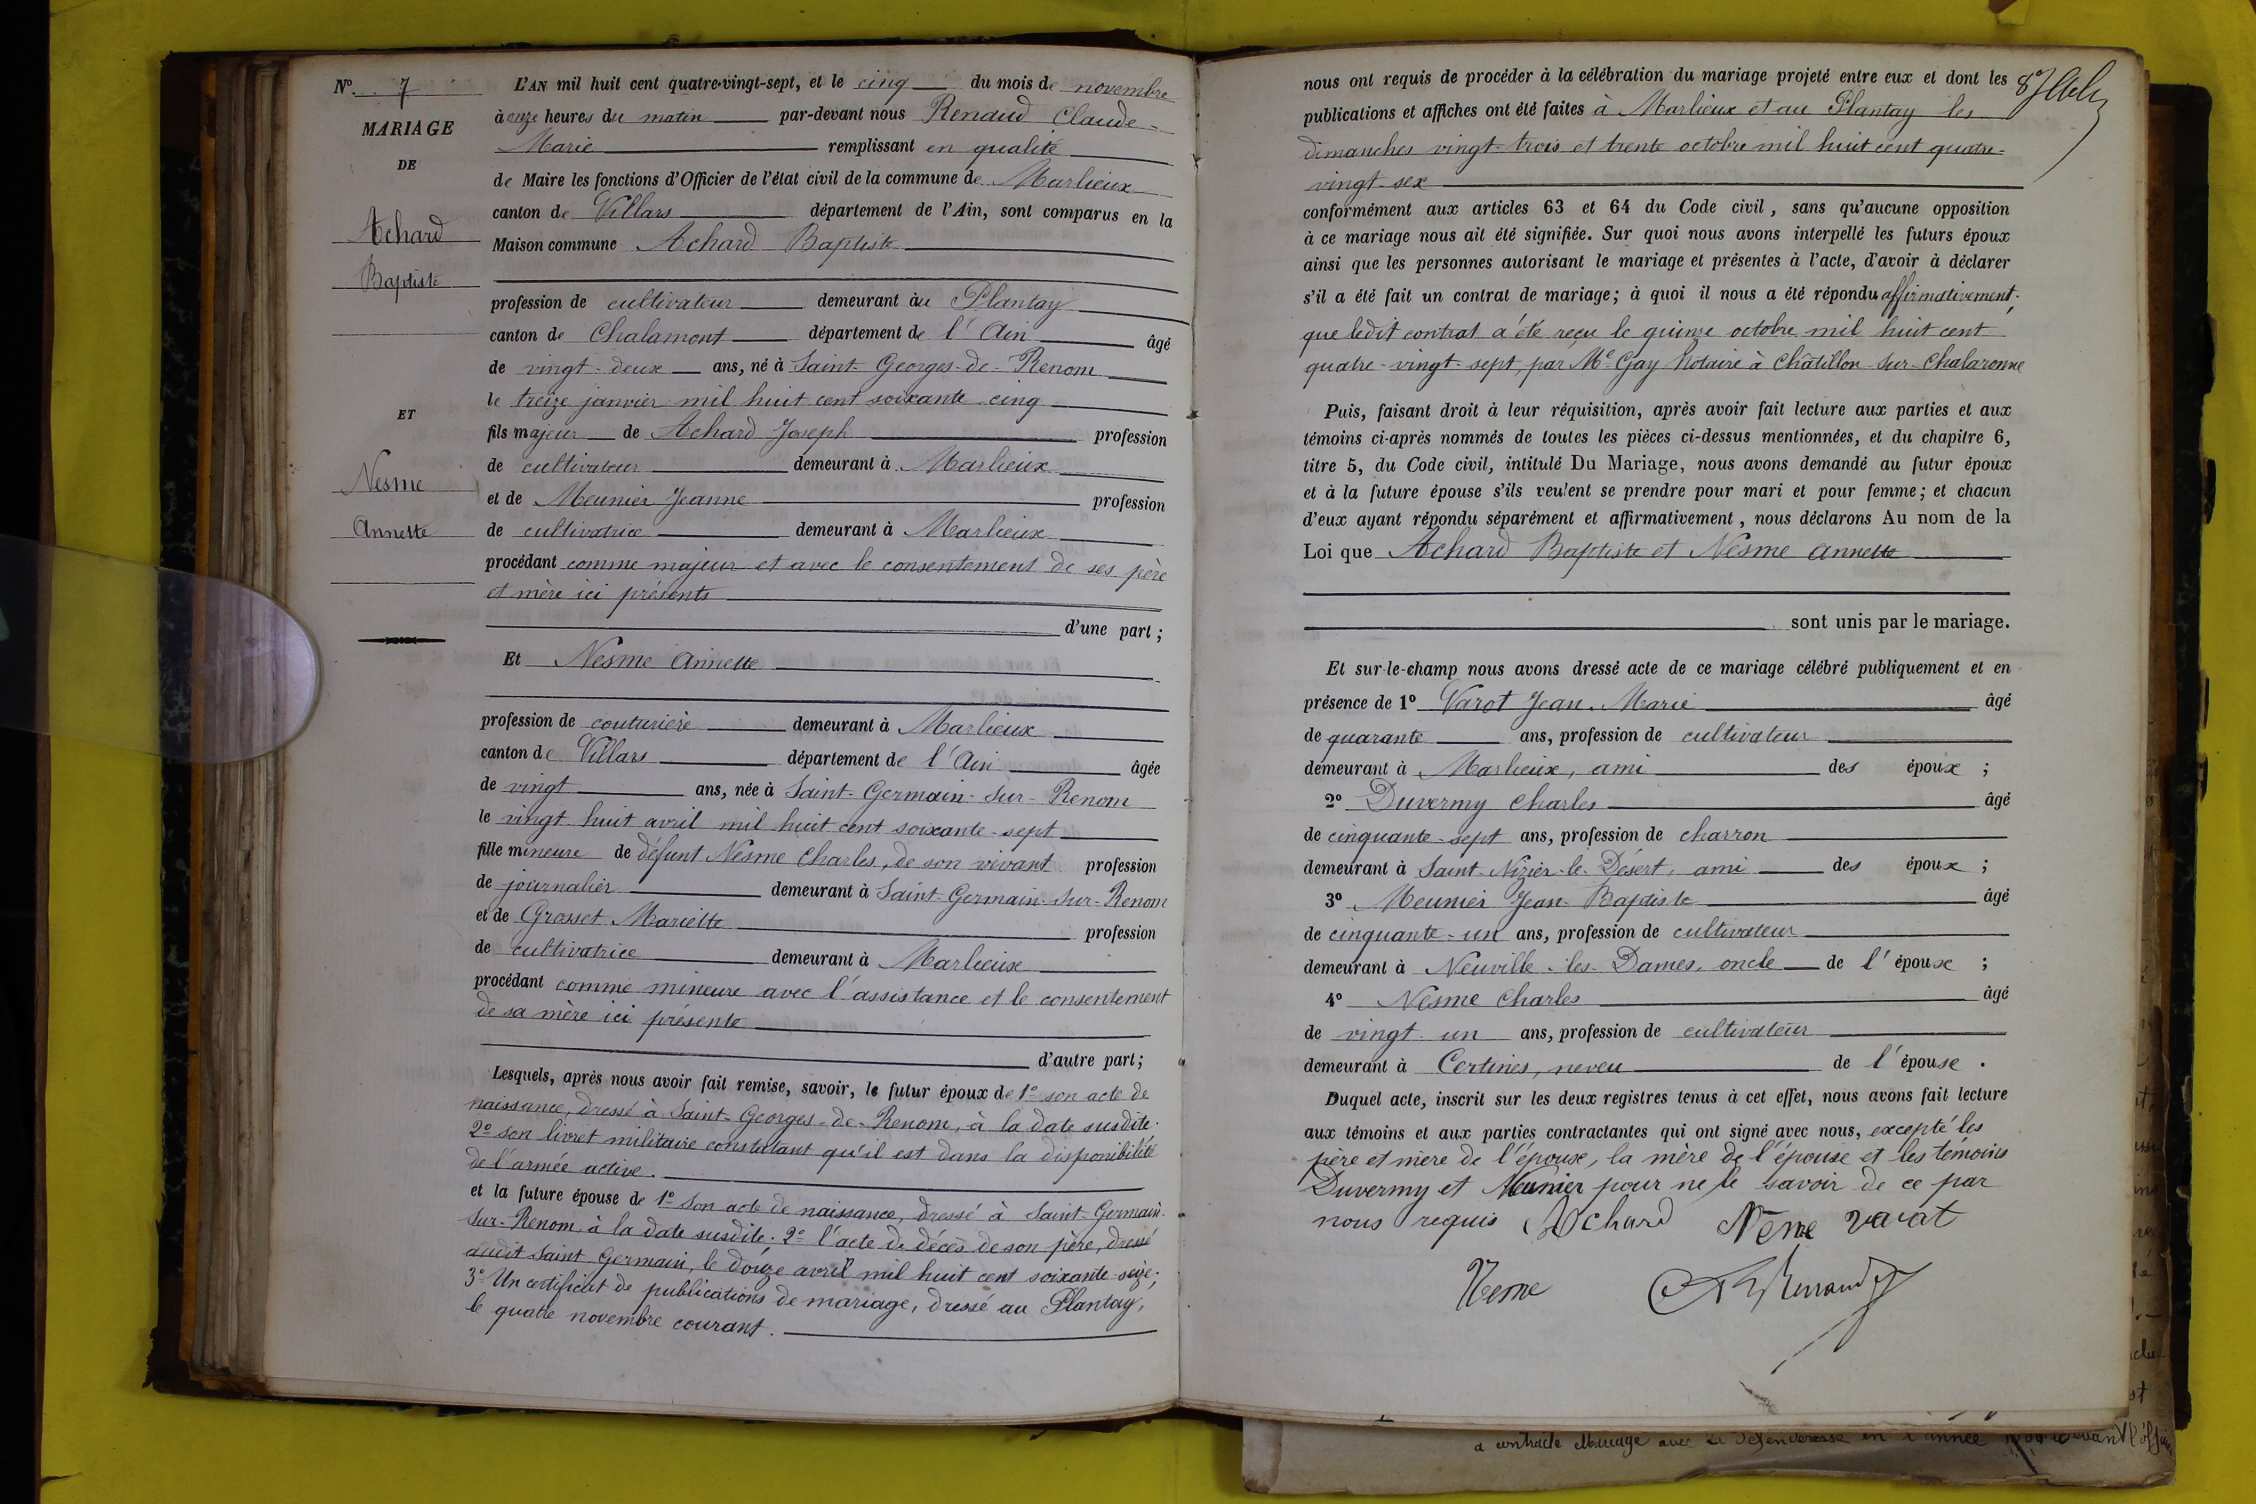 N° 7
MARIAGE
DE
Achard
Baptiste
ET
Nesme
Annette
L'AN mil huit cent quatre-vingt-sept, et le cinq du mois de novembre
à onze heures du matin par-devant nous Renaud Claude-
Marie remplissant en qualité
de Maire les fonctions d'Officier de l'état civil de la commune de Marlieux
canton de Villars département de l'Ain, sont comparus en la
Maison commune Achard Baptiste
profession de cultivateur demeurant au Plantay
canton de Chalamont département de l'Ain âgé
de vingt-deux ans, né à Saint-Georges-de-Renom
le treize janvier mil huit cent soixante cinq
fils majeur de Achard Joseph profession
de cultivateur demeurant à Marlieux
et de Meunier Jeanne profession
de cultivatrice demeurant à Marlieux
procédant comme majeur et avec le consentement de ses père
et mère ici présents
d'une part ;
Et Nesme Annette
profession de couturière demeurant à Marlieux
canton de Villars département de l'Ain âgée
de vingt ans, née à Saint-Germain-sur-Renom
le vingt huit avril mil huit cent soixante-sept
fille mineure de défunt Nesme Charles, de son vivant profession
de journalier demeurant à Saint-Germain-sur-Renom
et de Grosset Mariette profession
de cultivatrice demeurant à Marlieux
procédant comme mineure avec l'assistance et le consentement
de sa mère ici présente
d'autre part ;
Lesquels, après nous avoir fait remise, savoir, le futur époux de 1° son acte de
naissance, dressé à Saint-Georges-de-Renom, à la date susdite.
2° son livret militaire constatant qu'il est dans la disponibilité
de l'armée active.
et la future épouse de 1° son acte de naissance, dressé à Saint-Germain-
sur-Renom, à la date susdite. 2° l'acte de décès de son père, dressé
audit Saint Germain, le douze avril mil huit cent soixante-seize ;
3° Un certificat de publications de mariage, dressé au Plantay,
le quatre novembre courant.
nous ont requis de procéder à la célébration du mariage projeté entre eux et dont les
publications et affiches ont été faites à Marlieux et au Plantay les
dimanches vingt-trois et trente octobre mil huit cent quatre-
vingt-sex
conformément aux articles 63 et 64 du Code civil, sans qu'aucune opposition
à ce mariage nous ait été signifiée. Sur quoi nous avons interpellé les futurs époux
ainsi que les personnes autorisant le mariage et présentes à l'acte, d'avoir à déclarer
s'il a été fait un contrat de mariage ; à quoi il nous a été répondu affirmativement.
que ledit contrat a été reçu le quinze octobre mil huit cent
quatre-vingt-sept, par Me Gay Notaire à Châtillon-sur-Chalaronne
Puis, faisant droit à leur réquisition, après avoir fait lecture aux parties et aux
témoins ci-après nommés de toutes les pièces ci-dessus mentionnées, et du chapitre 6,
titre 5, du Code civil, intitulé Du Mariage, nous avons demandé au futur époux
et à la future épouse s'ils veulent se prendre pour mari et pour femme ; et chacun
d'eux ayant répondu séparément et affirmativement, nous déclarons Au nom de la
Loi que Achard Baptiste et Nesme Annette
sont unis par le mariage.
Et sur-le-champ nous avons dressé acte de ce mariage célébré publiquement et en
présence de 1° Varot Jean-Marie âgé
de quarante ans, profession de cultivateur
demeurant à Marlieux, ami des époux ;
2° Duvermy Charles âgé
de cinquante-sept ans, profession de charron
demeurant à Saint-Nizier-le-Désert, ami des époux ;
3° Meunier Jean-Baptiste âgé
de cinquante-un ans, profession de cultivateur
demeurant à Neuville-les-Dames, oncle de l'épouse ;
4° Nesme Charles âgé
de vingt-un ans, profession de cultivateur
demeurant à Certines, neveu de l'épouse.
Duquel acte, inscrit sur les deux registres tenus à cet effet, nous avons fait lecture
aux témoins et aux parties contractantes qui ont signé avec nous, excepté les
père et mère de l'épouse, la mère de l'épouse et les témoins
Duvermy et Meunier pour ne le savoir de ce par
nous requis Achard Neme varat
Neme Renaud
a contracté Mariage avec la défenderesse en l'année